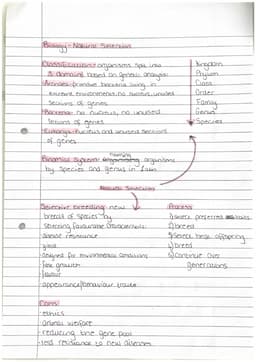 Biology - Natural Selection
Classification: organisms split into
3 domains based on genetic analysis
Archaea - primitive bacteria living in
extreme environments, no nucleus, unused
sections of genes
Bacteria - no nucleus, no unused
sections of genes
Eukarya - nucleus and unused sections
of genes
Kingdom
Phylum
Class
Order
Family
Genus
Species
Binomial System: naming organisms
by species and genus in Latin
Selective Selection
Selective breeding: new
breeds of species by
selecting favourable characteristics:
disease resistance
yield
designed for environmental conditions
fast growth
flavour
appearance/behaviour traits
Process
1) select preferred traits
2) breed
3) select best offspring
4) breed
5) Continue over
generations
Cons:
- ethics
- animal welfare
- reducing the gene pool
- less resistance to new diseases